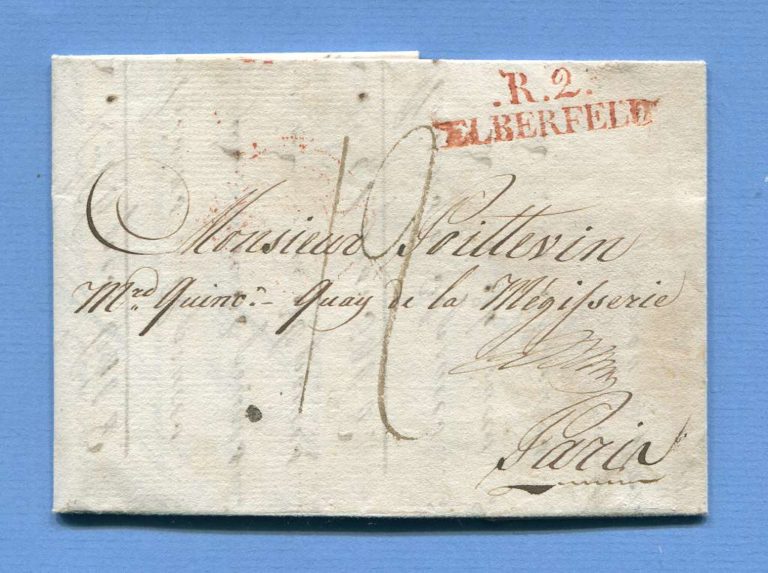 .R.2.
ELBERFELD
Monsieur Poittevin
Mrd Quinc.r - Quay de la Mégisserie
Paris